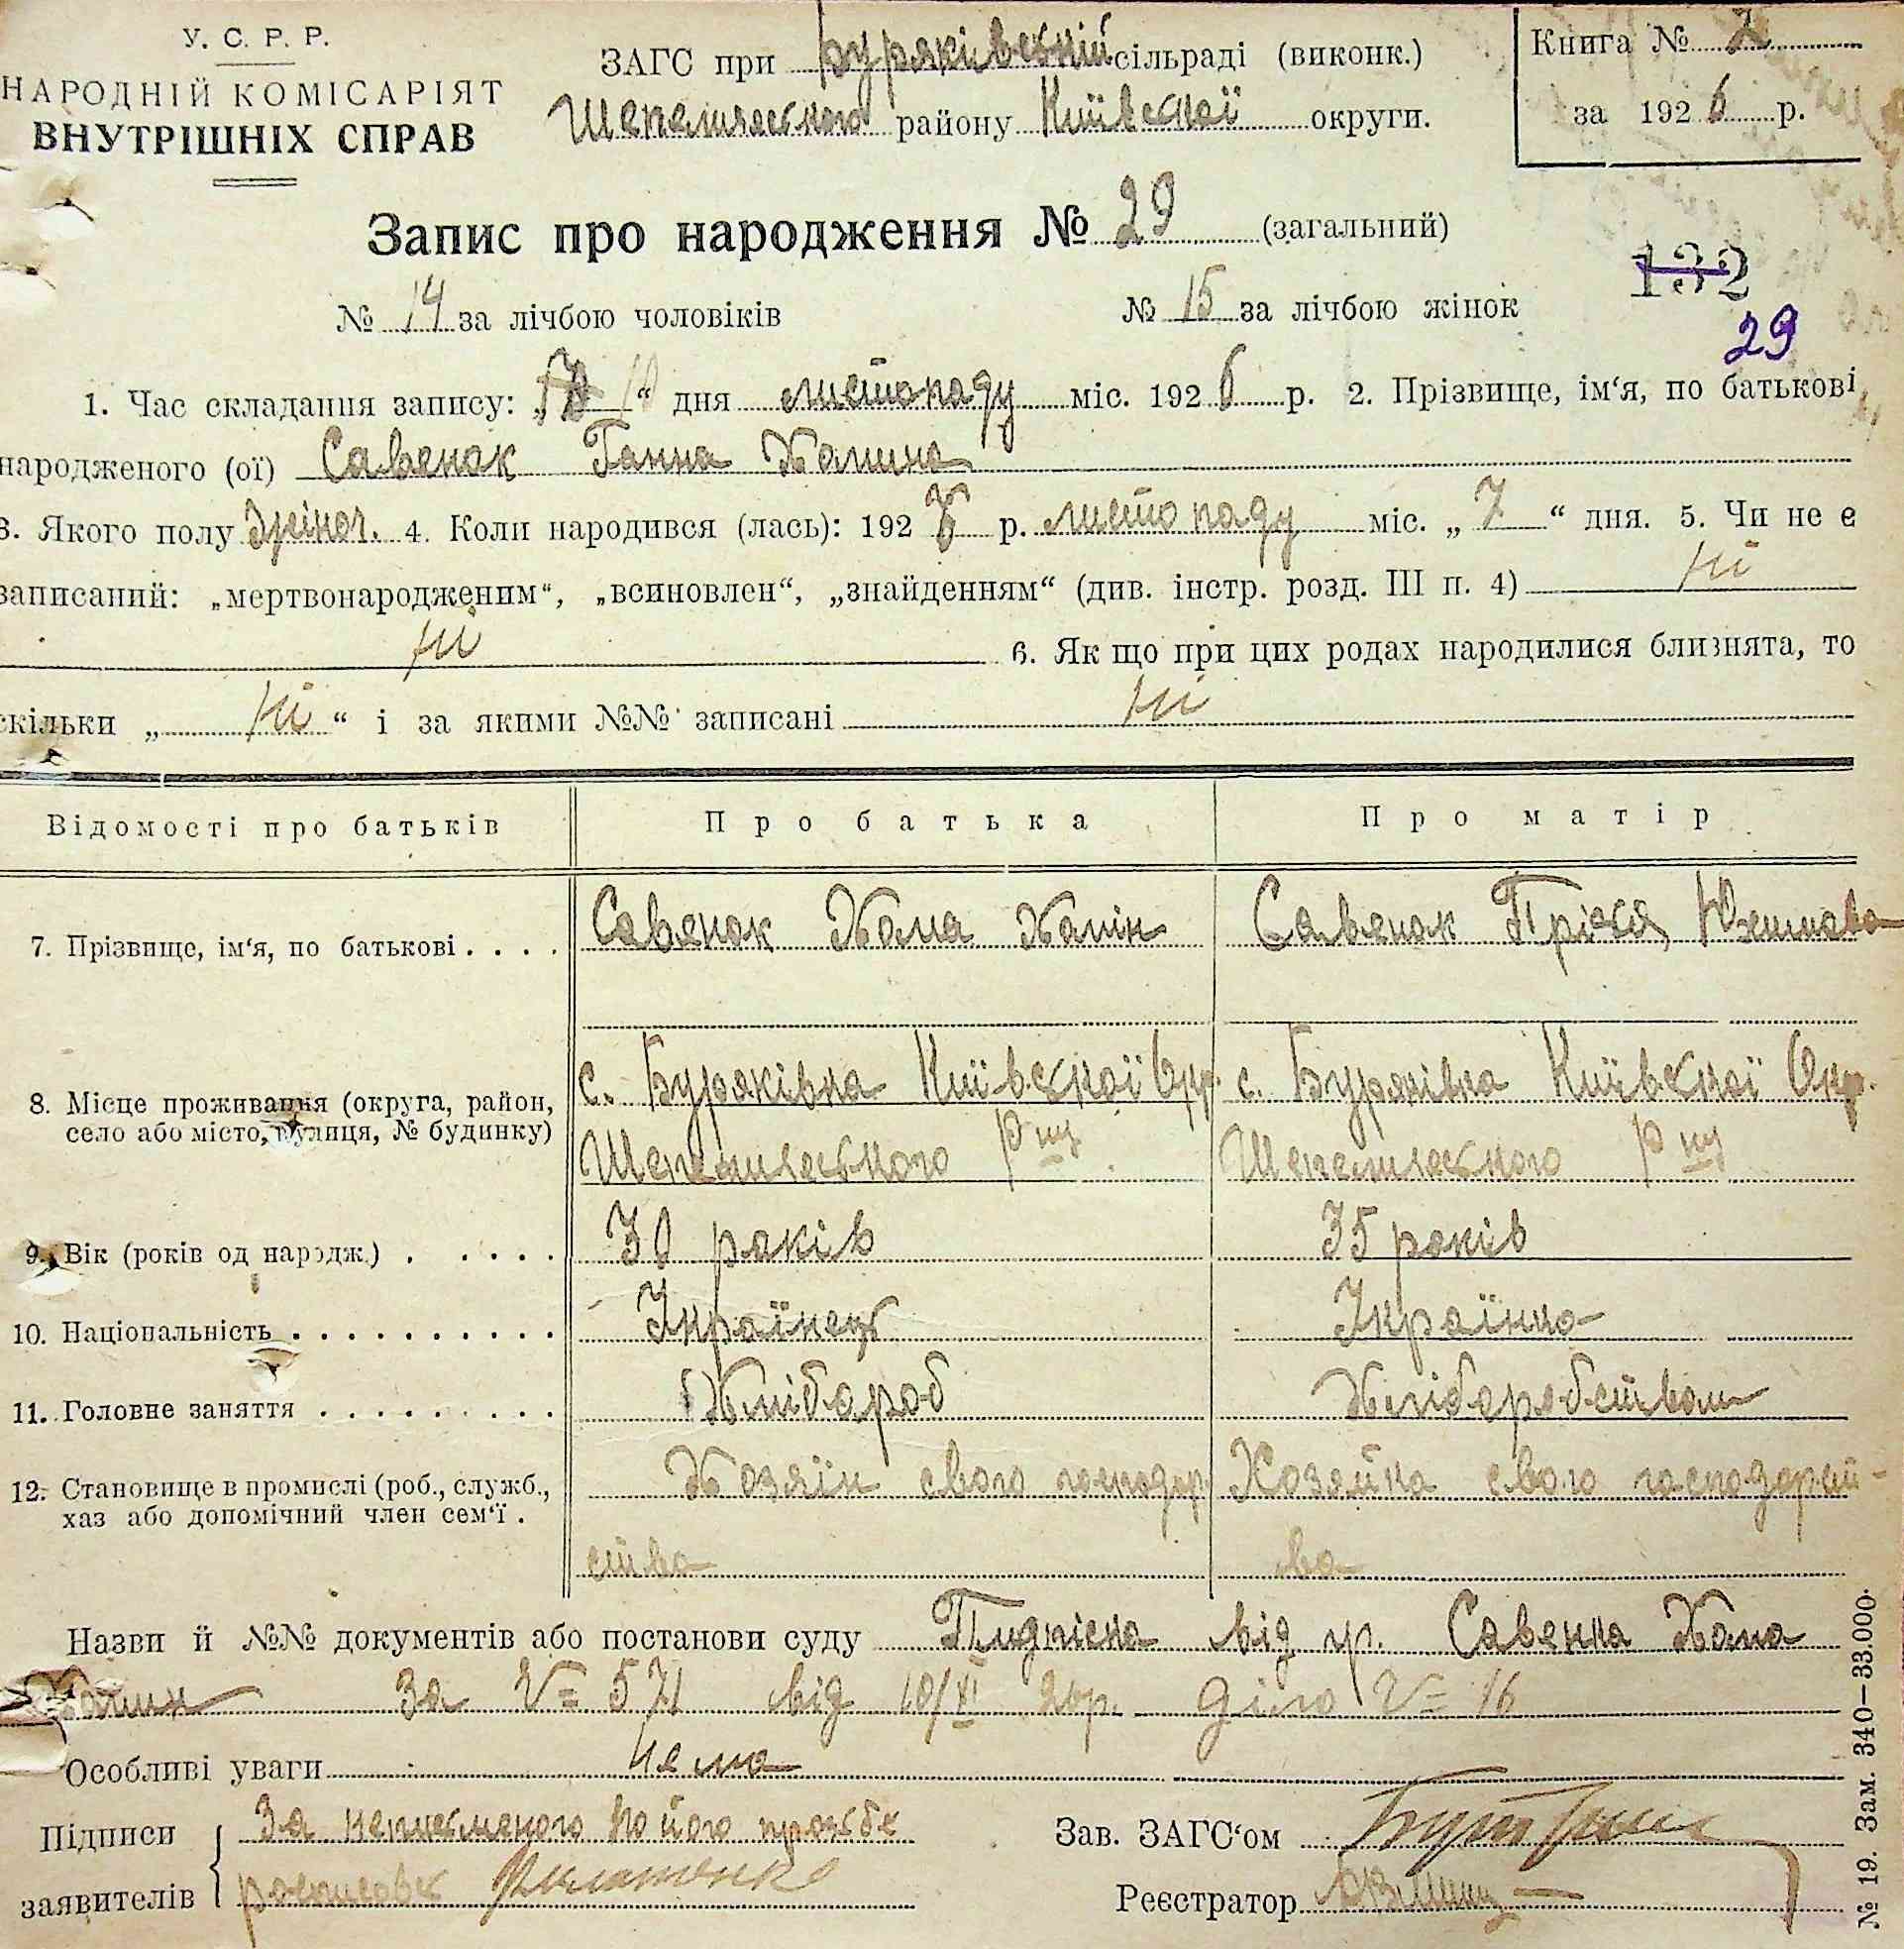 У. С. Р. Р.
НАРОДНІЙ КОМІСАРІЯТ
ВНУТРІШНІХ СПРАВ
ЗАГС при Буряківській сільраді (виконк.)
Шепелицького району Київської округи.
Книга № 2
за 1926 р.
Запис про народження № 29 (загальний)
132
29
№ 14 за лічбою чоловіків № 15 за лічбою жінок
1. Час складання запису: „10“ дня листопаду міс. 1926 р. 2. Прізвище, ім‘я, по батькові
народженого (ої) Савенок Ганна Хомина
3. Якого полу жіноч. 4. Коли народився (лась): 1926 р. листопаду міс. „7“ дня. 5. Чи не є
записаний: „мертвонародженим“, „всиновлен“, „знайденням“ (див. інстр. розд. III п. 4) ні
ні 6. Як що при цих родах народилися близнята, то
скільки „ні“ і за якими №№ записані ні
Відомості про батьків Про батька Про матір
7. Прізвище, ім‘я, по батькові . . . . Савенок Хома Хомін Савенок Пріся
8. Місце проживання (округа, район, с. Буряківка Київської Окр. с. Буряківка Київської Окр.
село або місто, вулиця, № будинку) Шепелицького р ну Шепелицького р ну
9. Вік (років од народж.) . . . . . 30 років 35 років
10. Національність . . . . . . . . . . Українець Українка
11. Головне заняття . . . . . . . . . Хлібороб Хліборобством
12. Становище в промислі (роб., служб., Хозяїн свого господар Хозяйка свого господарст-
хаз або допомічний член сем‘ї . ства ва
Назви й №№ документів або постанови суду Підписка від гр. Савенка Хома
Хомин за № 571 від 10/XI 26р. діло № 16
Особливі уваги нема
Підписи За неписьменого по його прозьбе
заявителів росписовс
Зав. ЗАГС‘ом
Реєстратор
№ 19. Зам. 340—33.000.